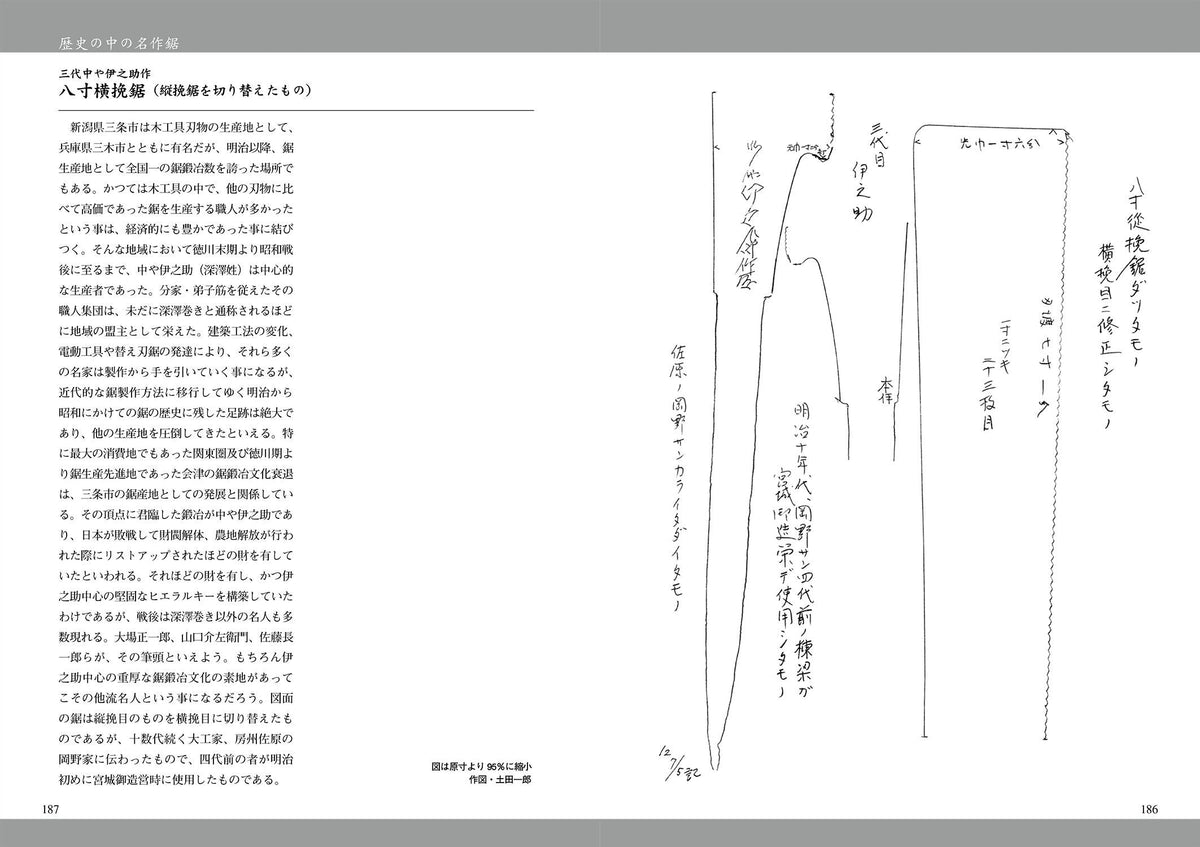 歴史の中の名作鋸
三代中や伊之助作
八寸横挽鋸（縦挽鋸を切り替えたもの）
新潟県三条市は木工具刃物の生産地として、
兵庫県三木市とともに有名だが、明治以降、鋸
生産地として全国一の鋸鍛冶数を誇った場所で
もある。かつては木工具の中で、他の刃物に比
べて高価であった鋸を生産する職人が多かった
という事は、経済的にも豊かであった事に結び
つく。そんな地域において徳川末期より昭和戦
後に至るまで、中や伊之助（深澤姓）は中心的
な生産者であった。分家・弟子筋を従えたその
職人集団は、未だに深澤巻きと通称されるほど
に地域の盟主として栄えた。建築工法の変化、
電動工具や替え刃鋸の発達により、それら多く
の名家は製作から手を引いていく事になるが、
近代的な鋸製作方法に移行してゆく明治から
昭和にかけての鋸の歴史に残した足跡は絶大で
あり、他の生産地を圧倒してきたといえる。特
に最大の消費地でもあった関東圏及び徳川期よ
り鋸生産先進地であった会津の鋸鍛冶文化衰退
は、三条市の鋸産地としての発展と関係してい
る。その頂点に君臨した鍛冶が中や伊之助であ
り、日本が敗戦して財閥解体、農地解放が行わ
れた際にリストアップされたほどの財を有して
いたといわれる。それほどの財を有し、かつ伊
之助中心の堅固なヒエラルキーを構築していた
わけであるが、戦後は深澤巻き以外の名人も多
数現れる。大場正一郎、山口介左衛門、佐藤長
一郎らが、その筆頭といえよう。もちろん伊
之助中心の重厚な鋸鍛冶文化の素地があって
こその他流名人という事になるだろう。図面
の鋸は縦挽目のものを横挽目に切り替えたも
のであるが、十数代続く大工家、房州佐原の
岡野家に伝わったもので、四代前の者が明治
初めに宮城御造営時に使用したものである。
図は原寸より95%に縮小
作図・土田一郎
187
八寸従挽鋸ダッタモノ
横挽目ニ修正シタモノ
一寸ニツキ
二十三枚目
先巾一寸六分
三代目
伊之助
本樋
明治十年代、岡野サン四代前ノ棟梁ガ
宮城御造栄デ使用シタモノ
佐原ノ岡野サンカライタダイタモノ
12 7/5記
186